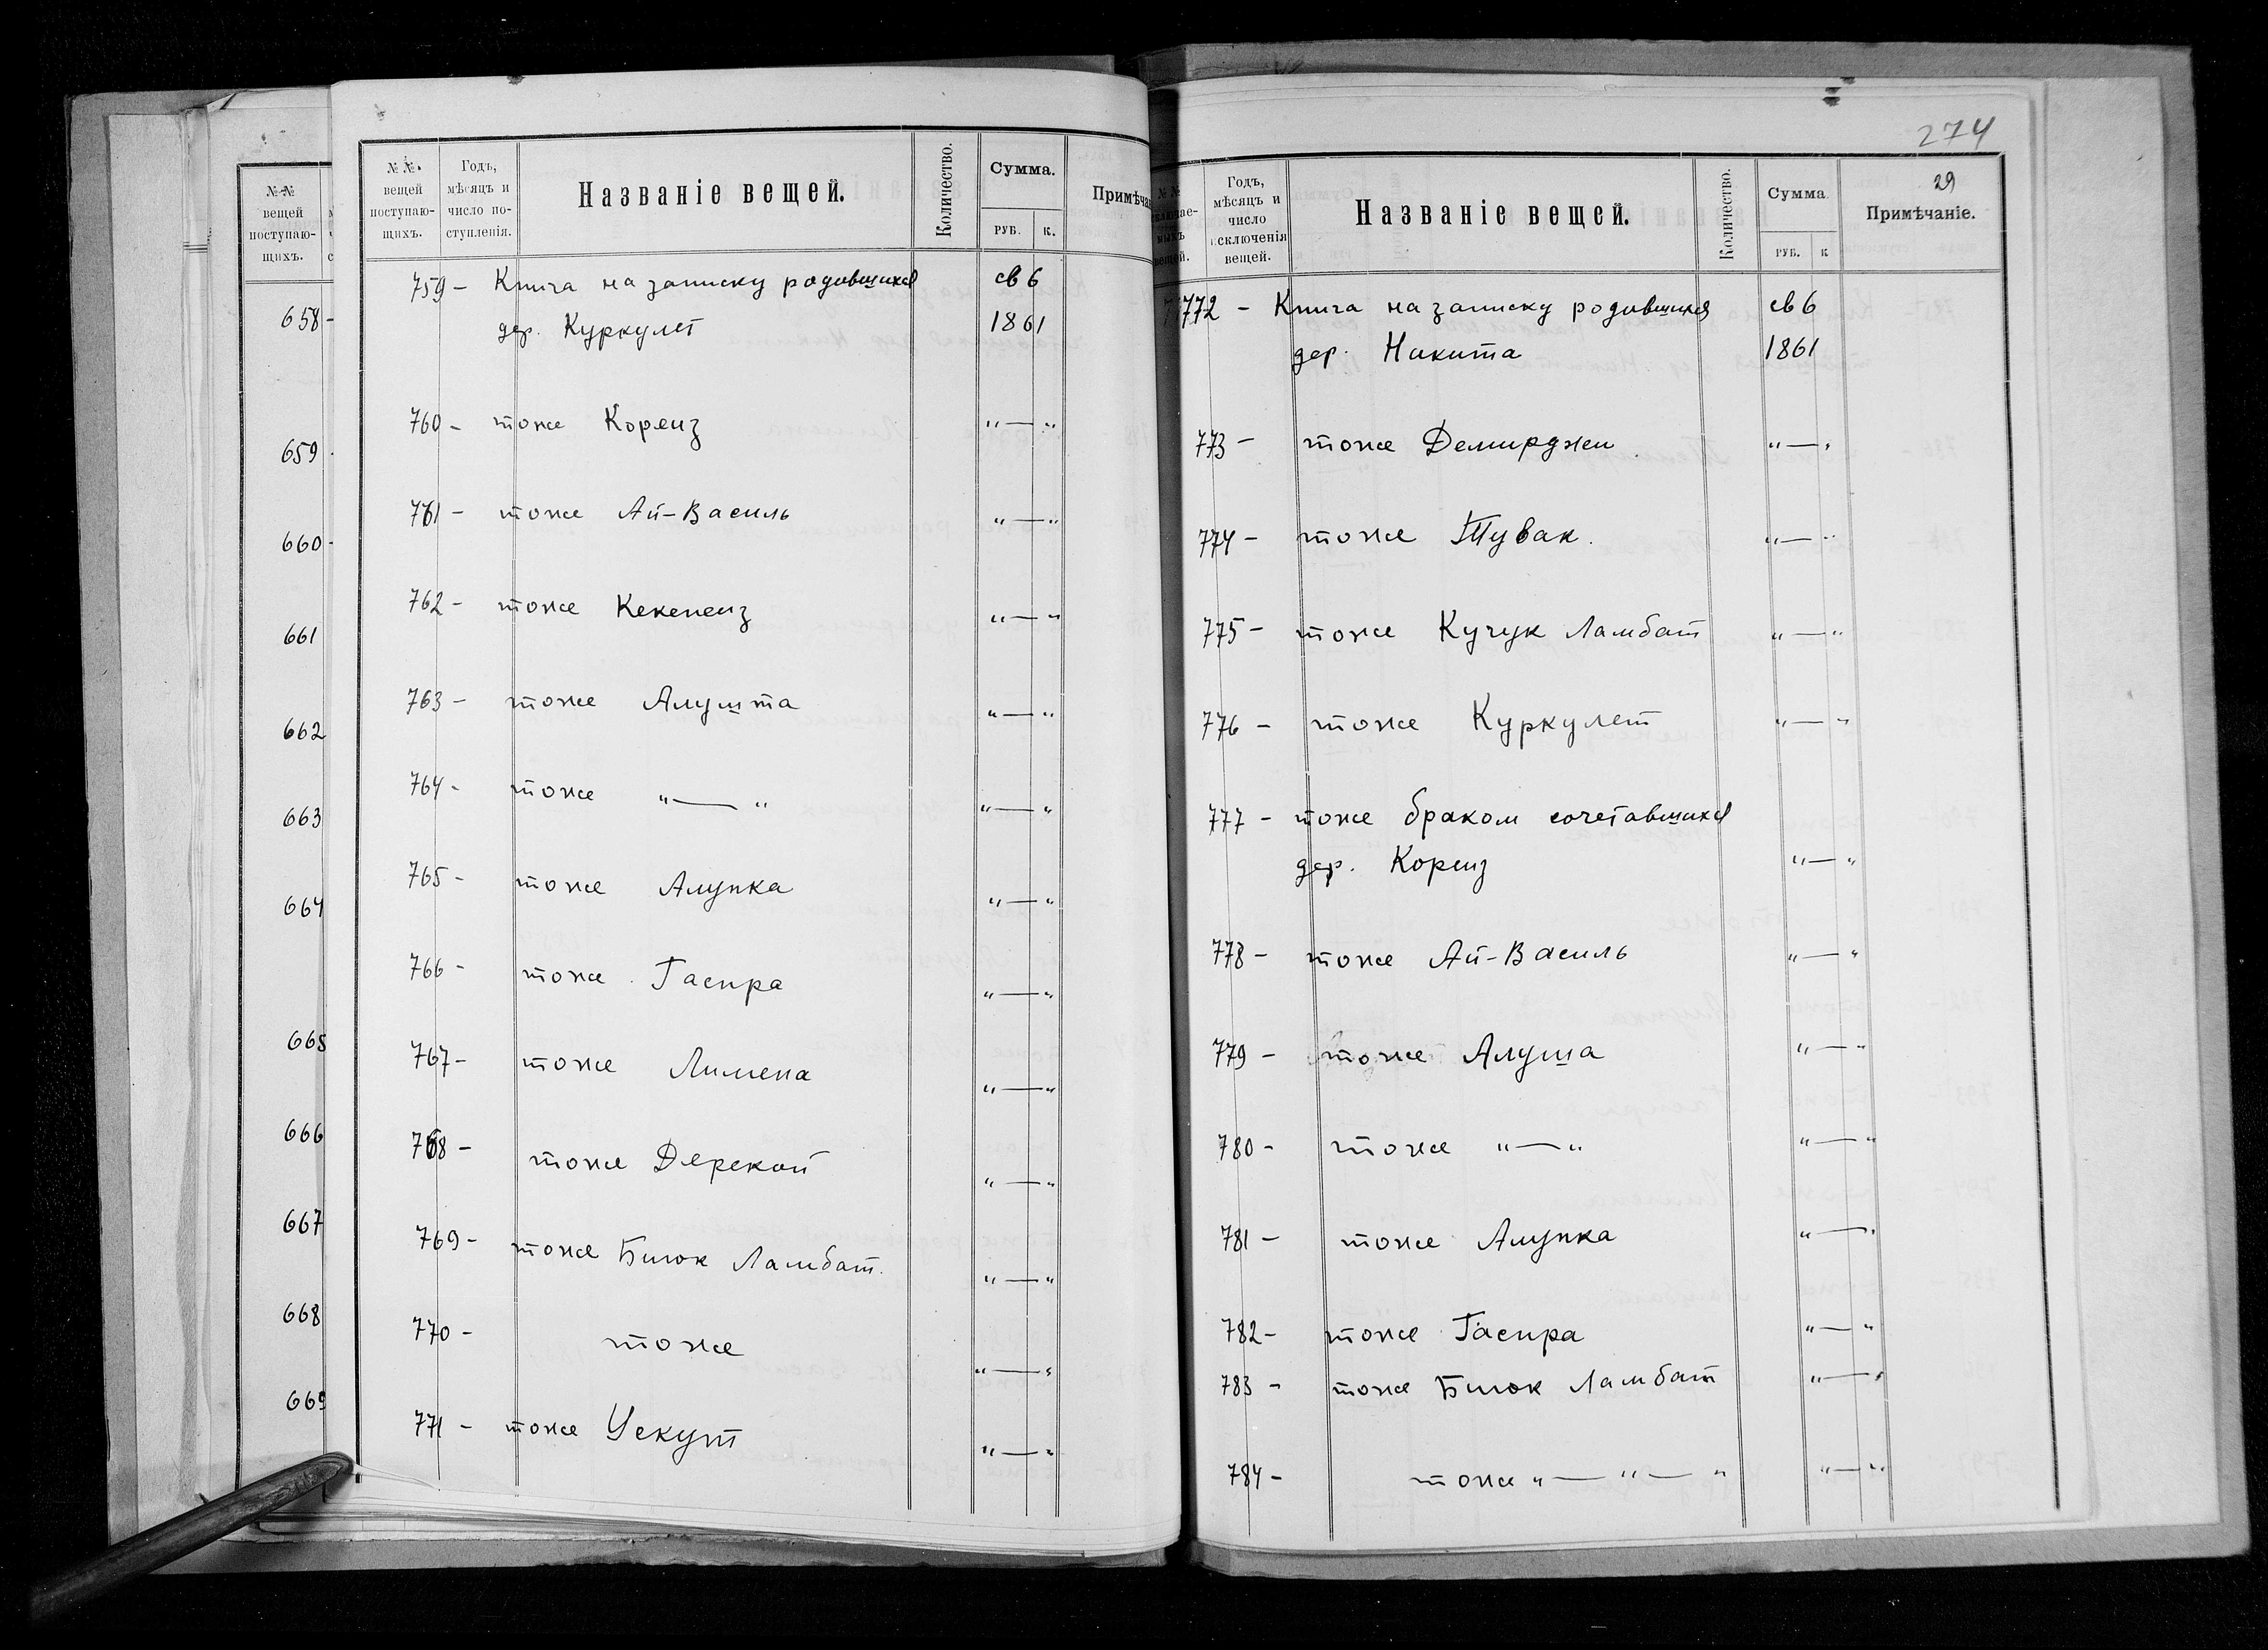 №№
вещей
поступаю-
щихъ.
658 -
659
660 -
661
662
663
664
665
666
667
668
669
№ №
вещей
поступаю-
щихъ.
Годъ,
мѣсяцъ и
число по-
ступленія.
Названіе вещей.
Количество.
Сумма.
РУБ. К.
Примѣча
759 - Книга на записку родившихся св 6
дер. Куркулет 1861
760 - тоже Кореиз " — "
761 - тоже Ай-Василь " — "
762 - тоже Кекенеиз " — "
763 - тоже Алушта " — "
764 - тоже " — " " — "
765 - тоже Алупка " — "
766 - тоже Гаспра " — "
767 - тоже Лимена " — "
768 - тоже Дерекой " — "
769 - тоже Биюк Ламбат. " — "
770 - тоже " — "
771 - тоже Ускут " — "
274
Годъ,
мѣсяцъ и
число
исключенія
вещей.
Названіе вещей.
Количество.
Сумма
РУБ. К
29
Примѣчаніе.
772 - Книга на записку родившихся св 6
дер. Никита 1861
773 - тоже Демирджи " — "
774 - тоже Тувак. " — "
775 - тоже Кучук Ламбат " — "
776 - тоже Куркулет " — "
777 - тоже браком сочетавшихся
дер. Кореиз " — "
778 - тоже Ай-Василь " — "
779 - тоже Алуша " — "
780 - тоже " — " " — "
781 - тоже Алупка " — "
782 - тоже Гаспра " — "
783 - тоже Биюк Ламбат " — "
784 - тоже " — " — " " — "